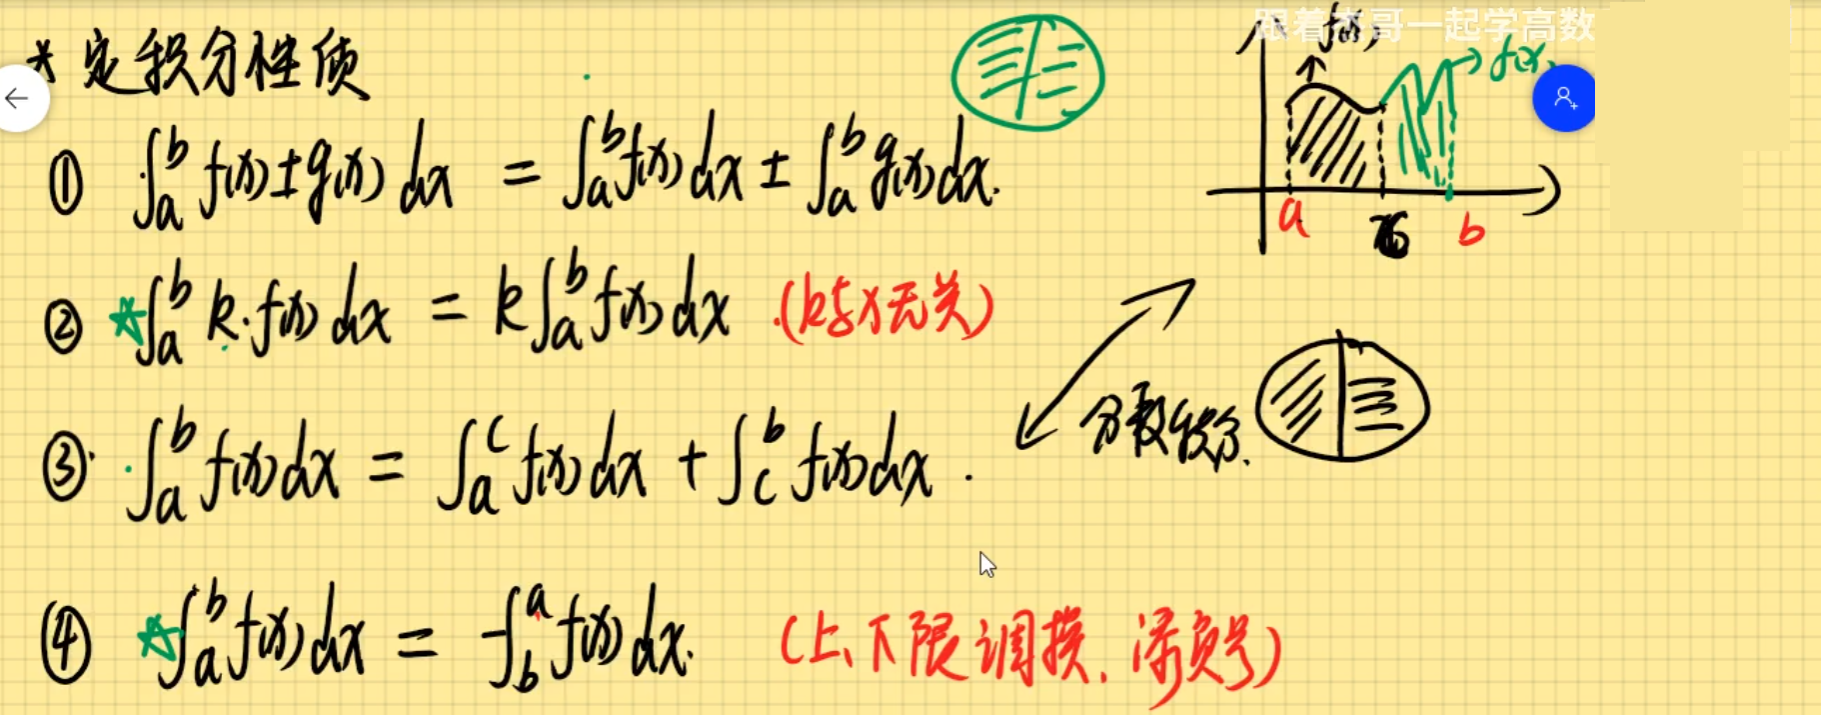 跟着杰哥一起学高数
* 定积分性质
① ∫_a^b f(x)±g(x) dx = ∫_a^b f(x)dx ± ∫_a^b g(x)dx.
② ☆∫_a^b k·f(x)dx = k∫_a^b f(x)dx (k与x无关)
③ ∫_a^b f(x)dx = ∫_a^c f(x)dx + ∫_c^b f(x)dx.
④ ☆∫_a^b f(x)dx = -∫_b^a f(x)dx. (上、下限调换,添负号)
f(x)
f(x)
a
b
分段积分.